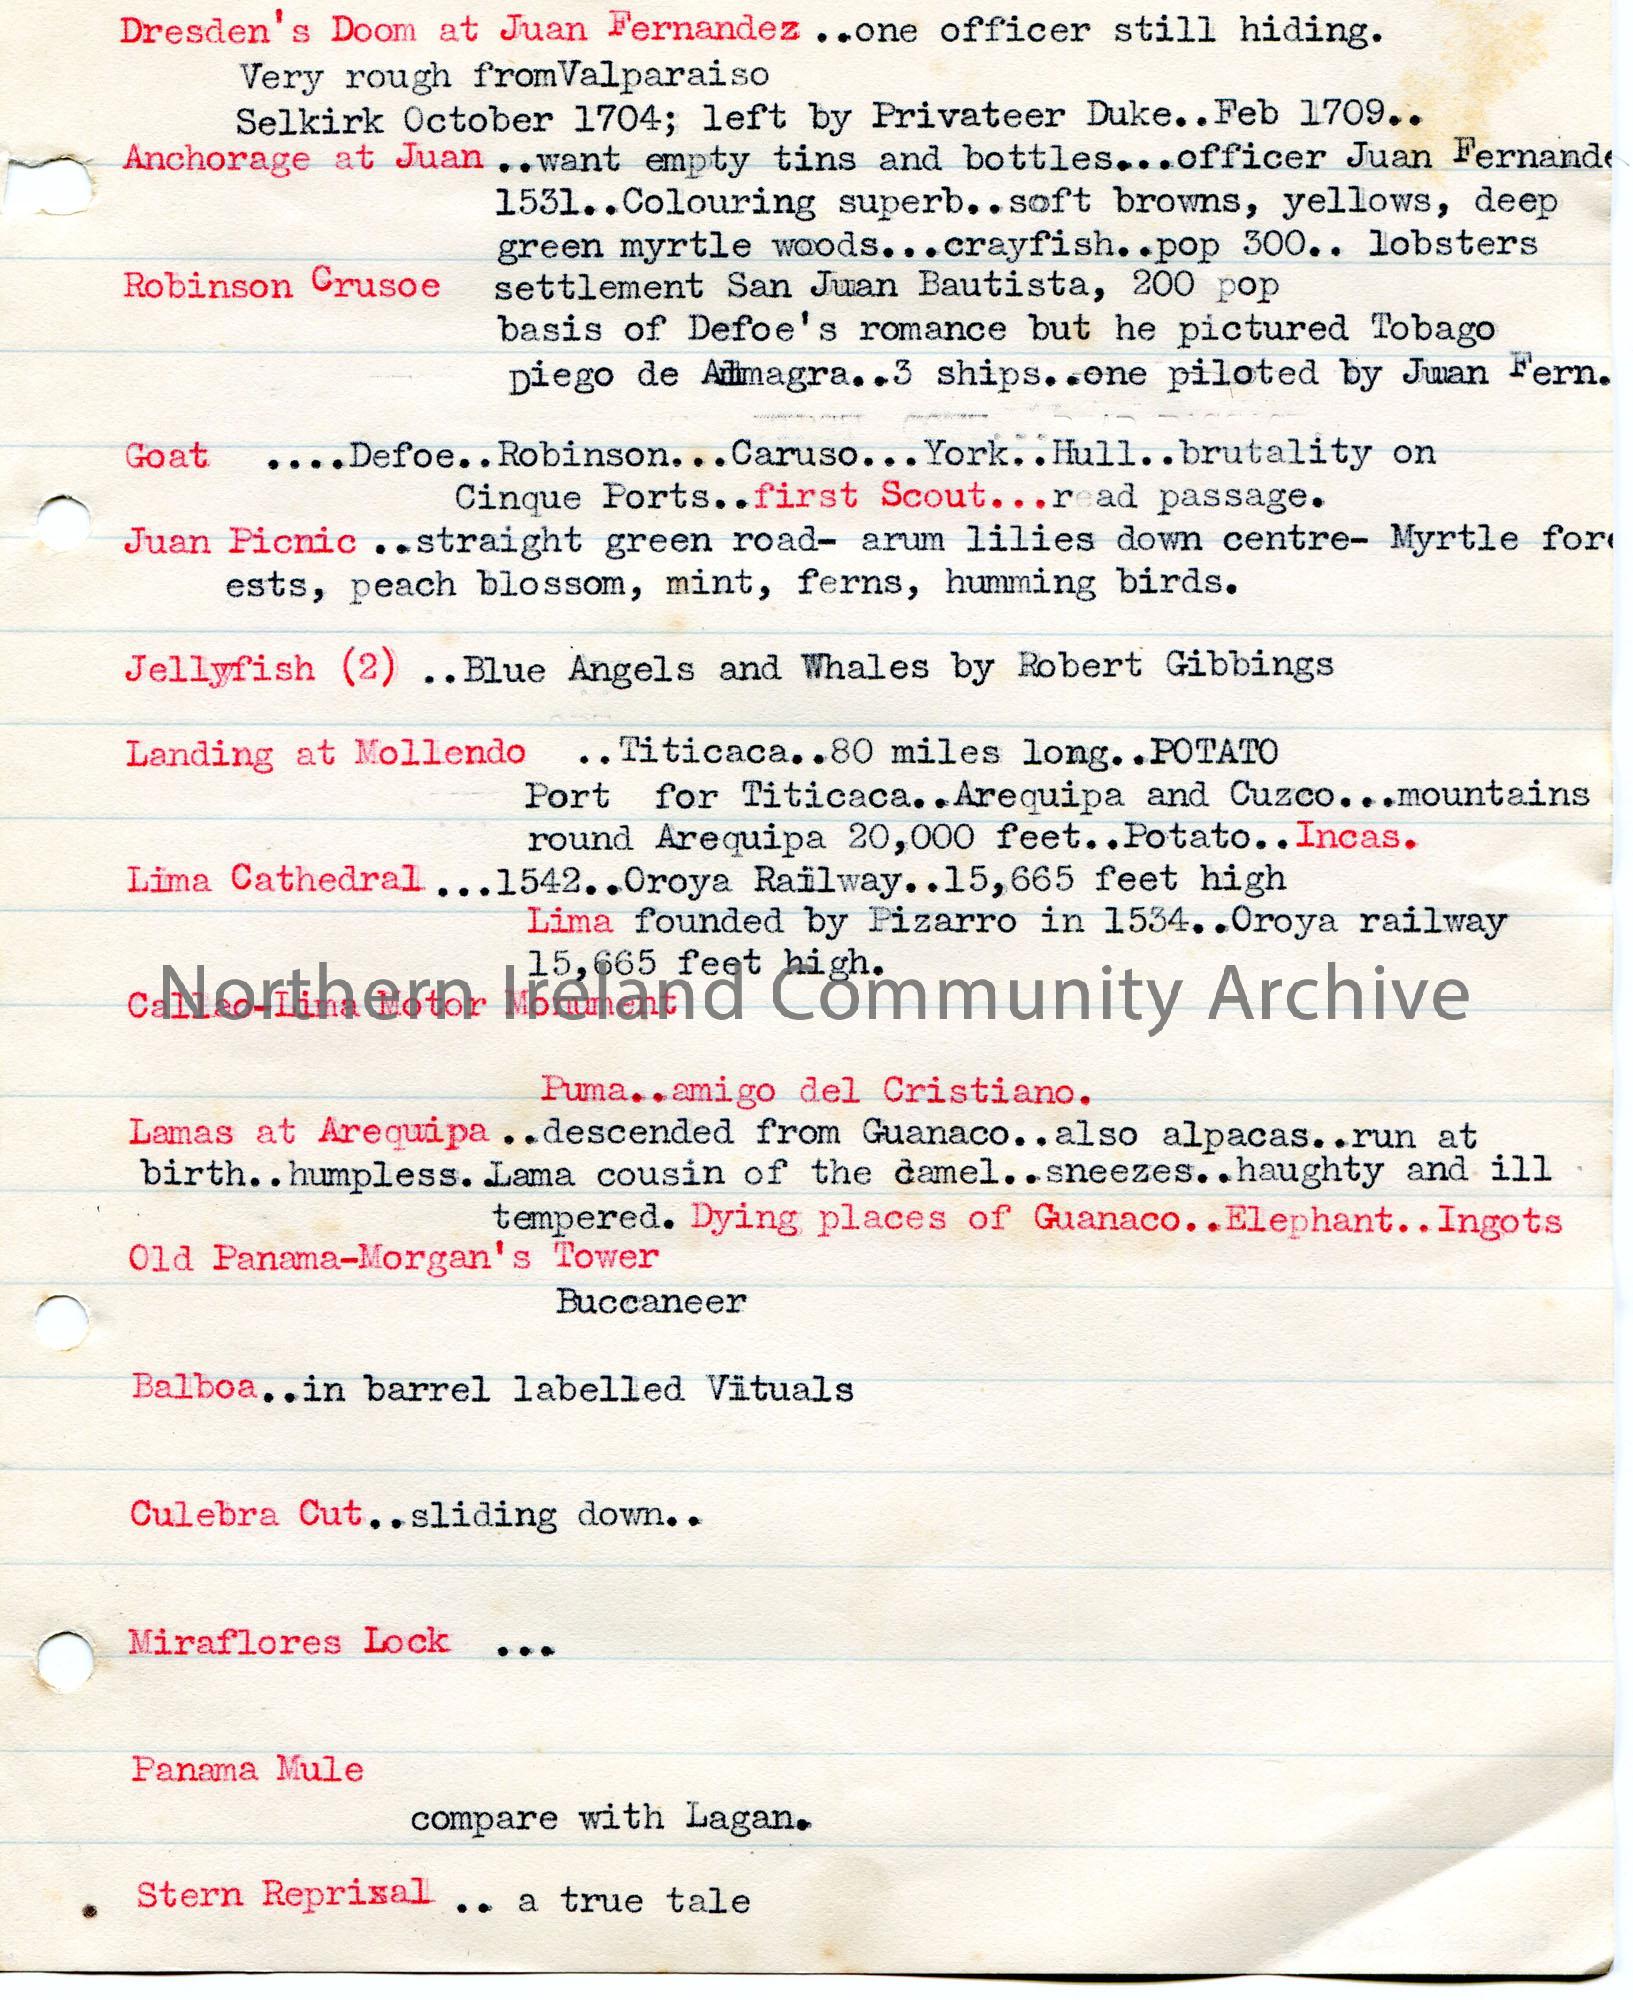 Dresden's Doom at Juan Fernandez ..one officer still hiding.
Very rough fromValparaiso
Selkirk October 1704; left by Privateer Duke..Feb 1709..
Anchorage at Juan ..want empty tins and bottles...officer Juan Fernande
1531..Colouring superb..soft browns, yellows, deep
green myrtle woods...crayfish..pop 300.. lobsters
Robinson Crusoe settlement San Juan Bautista, 200 pop
basis of Defoe's romance but he pictured Tobago
Diego de Almagra..3 ships..one piloted by Juan Fern.
Goat ....Defoe..Robinson...Caruso...York..Hull..brutality on
Cinque Ports..first Scout...read passage.
Juan Picnic ..straight green road- arum lilies down centre- Myrtle for
ests, peach blossom, mint, ferns, humming birds.
Jellyfish (2) ..Blue Angels and Whales by Robert Gibbings
Landing at Mollendo ..Titicaca..80 miles long..POTATO
Port for Titicaca..Arequipa and Cuzco...mountains
round Arequipa 20,000 feet..Potato..Incas.
Lima Cathedral ...1542..Oroya Railway..15,665 feet high
Lima founded by Pizarro in 1534..Oroya railway
15,665 feet high.
Northern Ireland Community Archive
Callao-Lima Motor Monument
Puma..amigo del Cristiano.
Lamas at Arequipa ..descended from Guanaco..also alpacas..run at
birth..humpless..Lama cousin of the camel..sneezes..haughty and ill
tempered. Dying places of Guanaco..Elephant..Ingots
Old Panama-Morgan's Tower
Buccaneer
Balboa..in barrel labelled Vituals
Culebra Cut..sliding down..
Miraflores Lock ...
Panama Mule
compare with Lagan.
Stern Reprisal .. a true tale